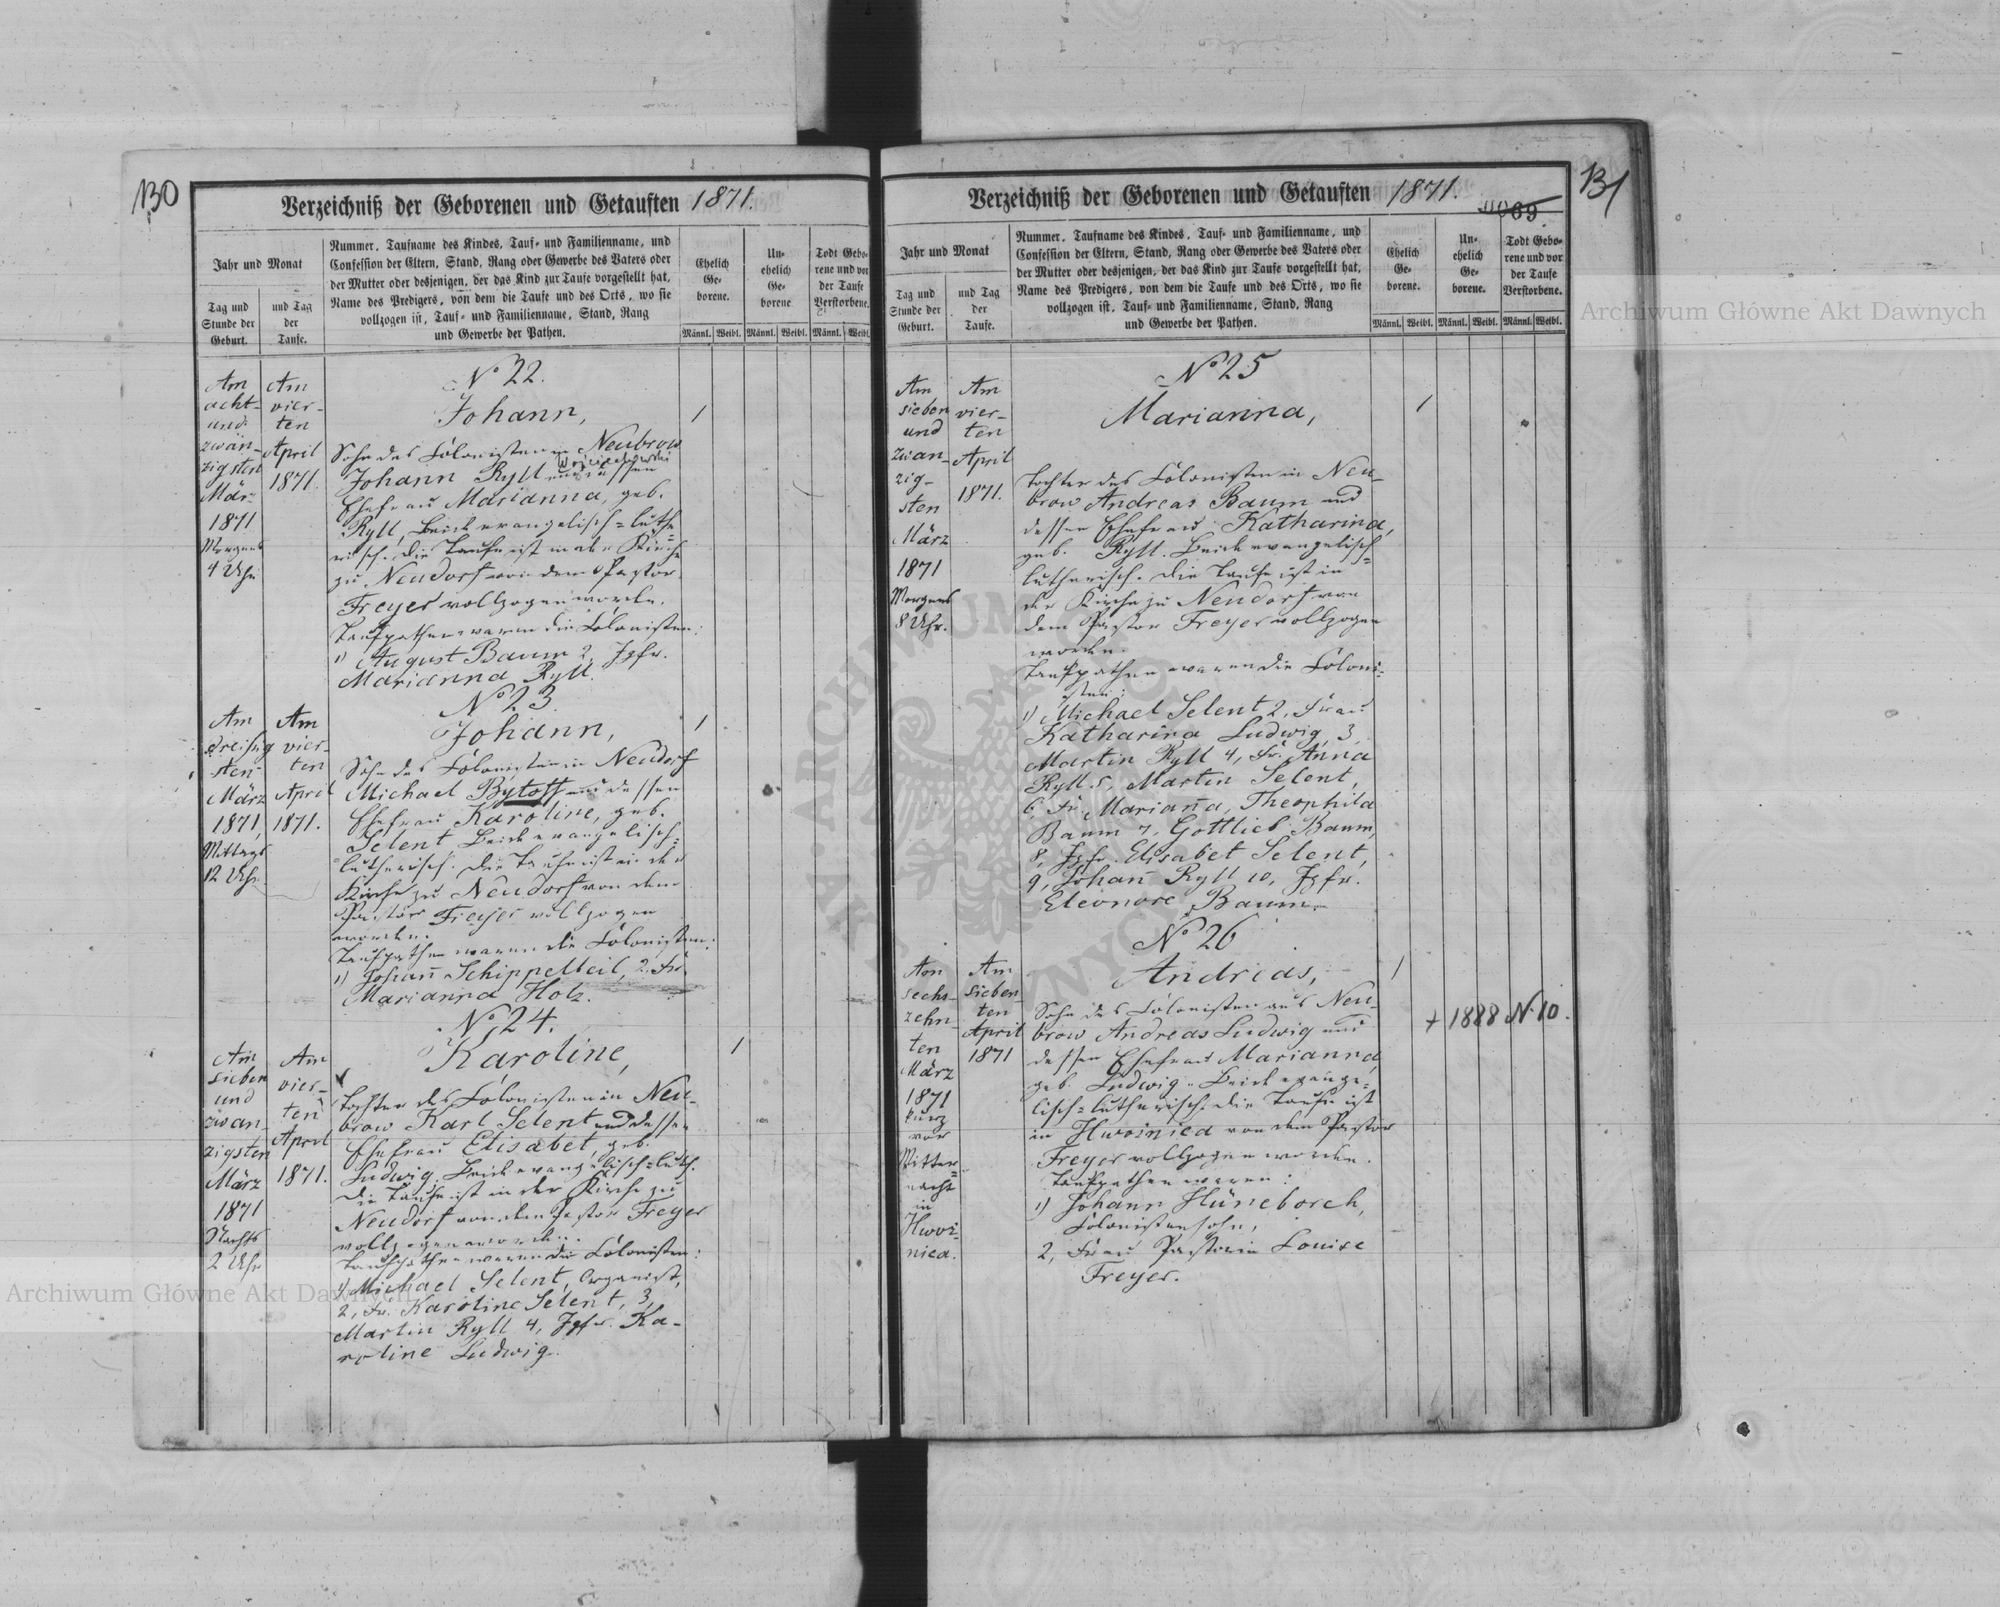 130
Verzeichniß der Geborenen und Getauften 1871.
Jahr und Monat
Tag und Stunde der Geburt.
und Tag der Taufe.
Nummer, Taufname des Kindes, Tauf- und Familienname, und
Confession der Eltern, Stand, Rang oder Gewerbe des Vaters oder
der Mutter oder desjenigen, der das Kind zur Taufe vorgestellt hat,
Name des Predigers, von dem die Taufe und des Orts, wo sie
vollzogen ist, Tauf- und Familienname, Stand, Rang
und Gewerbe der Pathen.
Ehelich Geborene.
Unehelich Geborene
Todt Geborene und vor der Taufe Verstorbene.
Männl. Weibl. Männl. Weibl. Männl. Weibl.
Am
acht-
und
zwan-
zigsten
März
1871
Morgens
4 Uhr
Am
vier-
ten
April
1871.
No 22.
Johann,
1
Sohn des Colonisten in Neubrow
Johann Ryll und dessen
Ehefrau Marianna, geb.
Ryll, Beide evangelisch=luthe=
risch. Die Taufe ist in der Kirche
zu Neudorf von dem Pastor
Freyer vollzogen worden.
Taufpathen waren die Colonisten:
1) August Baum 2, Jgfr.
Marianna Ryll.
Am
dreißig
sten
März
1871,
Mittags
12 Uhr.
Am
vier-
ten
April
1871.
No 23
Johann,
1
Sohn des Colonisten in Neudorf
Michael Bytott und dessen
Ehefrau Karoline, geb.
Selent Beide evangelisch=
lutherisch. Die Taufe ist in der
Kirche zu Neudorf von dem
Pastor Freyer vollzogen
worden.
Taufpathen waren die Colonisten:
1) Johann Schippelbeil, 2. Fr.
Marianna Holz.
Am
sieben
und
zwan-
zigsten
März
1871
Nachts
2 Uhr
Am
vier-
ten
April
1871.
No 24.
Karoline,
1
Tochter des Colonisten in Neu-
brow Karl Selent und dessen
Ehefrau Elisabet, geb.
Ludwig. Beide evangelisch=luth.
Die Taufe ist in der Kirche zu
Neudorf von dem Pastor Freyer
vollzogen worden.
Taufpathen waren die Colonisten:
1) Michael Selent, Organist,
2, Fr. Karoline Selent, 3,
Martin Ryll 4, Jgfr. Ka-
roline Ludwig.
131
Verzeichniß der Geborenen und Getauften 1871.
69
Jahr und Monat
Tag und Stunde der Geburt.
und Tag der Taufe.
Nummer, Taufname des Kindes, Tauf- und Familienname, und
Confession der Eltern, Stand, Rang oder Gewerbe des Vaters oder
der Mutter oder desjenigen, der das Kind zur Taufe vorgestellt hat,
Name des Predigers, von dem die Taufe und des Orts, wo sie
vollzogen ist, Tauf- und Familienname, Stand, Rang
und Gewerbe der Pathen.
Ehelich Geborene.
Unehelich Geborene.
Todt Geborene und vor der Taufe Verstorbene.
Männl. Weibl. Männl. Weibl. Männl. Weibl.
Am
sieben
und
zwan-
zig-
sten
März
1871
Morgens
8 Uhr.
Am
vier-
ten
April
1871.
No 25
Marianna,
1
Tochter des Colonisten in Neu-
brow Andreas Baum und
dessen Ehefrau Katharina,
geb. Ryll. Beide evangelisch=
lutherisch. Die Taufe ist in
der Kirche zu Neudorf von
dem Pastor Freyer vollzogen
worden.
Taufpathen waren die Coloni-
sten:
1) Michael Selent 2, Frau
Katharina Ludwig, 3,
Martin Ryll 4, Fr. Anna
Ryll 5, Martin Selent,
6, Fr. Marianna, Theophila
Baum 7, Gottlieb Baum,
8, Jgfr. Elisabet Selent,
9, Johann Ryll 10, Jgfr.
Eleonore Baum.
Am
sechs-
zehn-
ten
März
1871
kurz
vor
Mitter=
nacht
in
Hwoi-
nica.
Am
sieben-
ten
April
1871
No 26
Andreas,
1
Sohn des Colonisten aus Neu-
brow Andreas Ludwig und
dessen Ehefrau Marianna,
geb. Ludwig. Beide evange=
lisch=lutherisch. Die Taufe ist
in Hwoinica von dem Pastor
Freyer vollzogen worden.
Taufpathen waren:
1) Johann Hüneborch,
Colonistensohn,
2, Frau Pastorin Louise
Freyer.
+ 1888 N. 10.
Archiwum Główne Akt Dawnych
Archiwum Główne Akt Dawnych